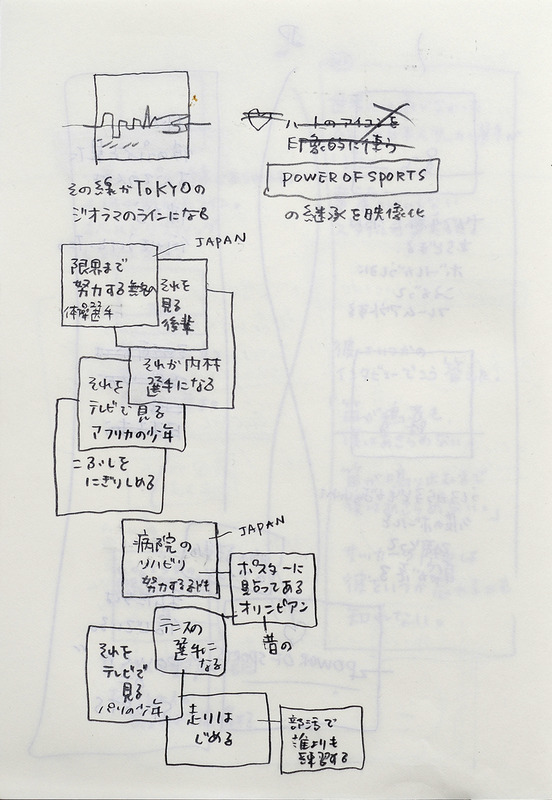 ハートのアイコンを
印象的に使う
POWER OF SPORTS
の継承を映像化
その線がTOKYOの
ジオラマのラインになる
JAPAN
限界まで
努力する無名の
体操選手
それを
見る
後輩
それが内村
選手になる
それを
テレビで見る
アフリカの少年
こぶしを
にぎりしめる
JAPAN
病院の
リハビリ
努力する子ども
ポスターに
貼ってある
オリンピアン
昔の
テニスの
選手になる
それを
テレビで
見る
パリの少年
走りは
じめる
部活で
誰よりも
練習する